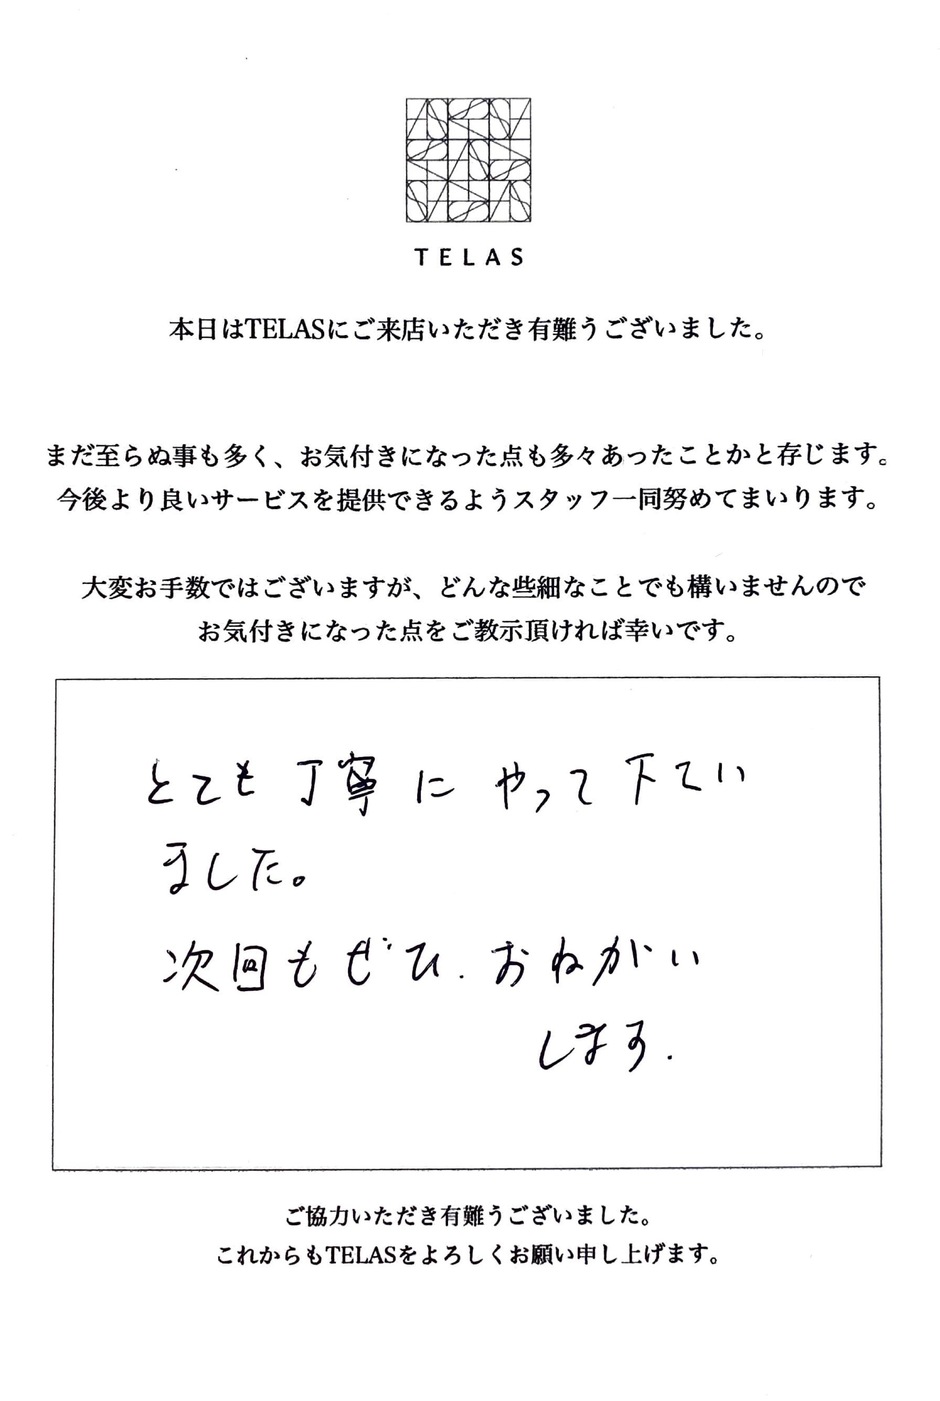 TELAS
本日はTELASにご来店いただき有難うございました。
まだ至らぬ事も多く、お気付きになった点も多々あったことかと存じます。
今後より良いサービスを提供できるようスタッフ一同努めてまいります。
大変お手数ではございますが、どんな些細なことでも構いませんので
お気付きになった点をご教示頂ければ幸いです。
とても丁寧にやって下てい
ました。
次回もぜひ.おねがい
します.
ご協力いただき有難うございました。
これからもTELASをよろしくお願い申し上げます。